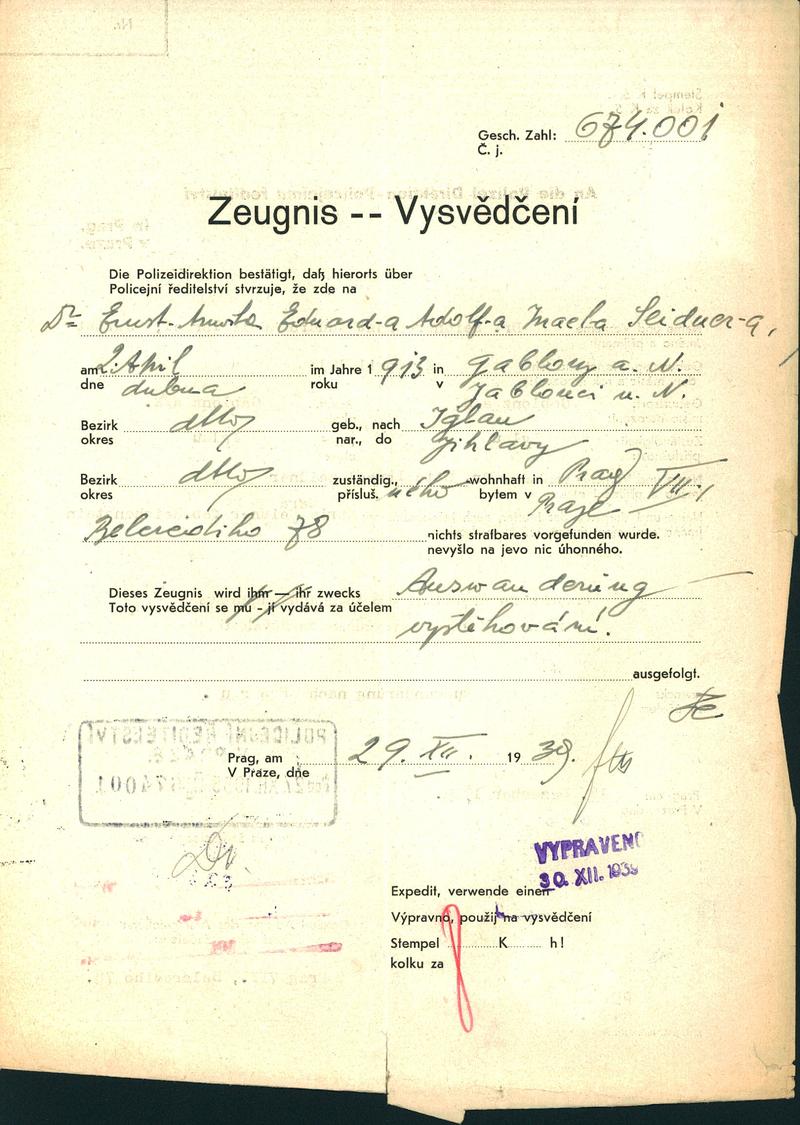 Gesch. Zahl: 674.001
Č. j.
Zeugnis -- Vysvědčení
Die Polizeidirektion bestätigt, daß hierorts über
Policejní ředitelství stvrzuje, že zde na
Dr Ernst- Eduard-a Adolf-a Seidner-a,
am 2. April im Jahre 1 913 in Gablonz a. N.
dne dubna roku v Jablonci n. N.
Bezirk dtto geb., nach Iglau
okres nar., do Jihlavy
Bezirk dtto zuständig., wohnhaft in Prag VII.,
okres přísluš. ného bytem v Praze
Belcrediho 78 nichts strafbares vorgefunden wurde.
nevyšlo na jevo nic úhonného.
Dieses Zeugnis wird ihm — ihr zwecks Auswanderung
Toto vysvědčení se mu - jí vydává za účelem vystěhování.
ausgefolgt.
POLICEJNÍ ŘEDITELSTVÍ
674001
Prag, am 29. XII. 19 39.
V Praze, dne
VYPRAVENO
30. XII. 1939
Expedit, verwende einen
Výpravno, použij na vysvědčení
Stempel K h!
kolku za